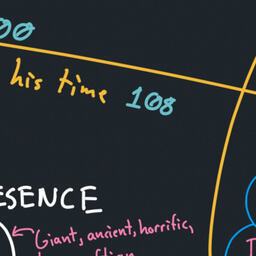 00
his time 108
ESENCE
Giant, ancient, horrific,